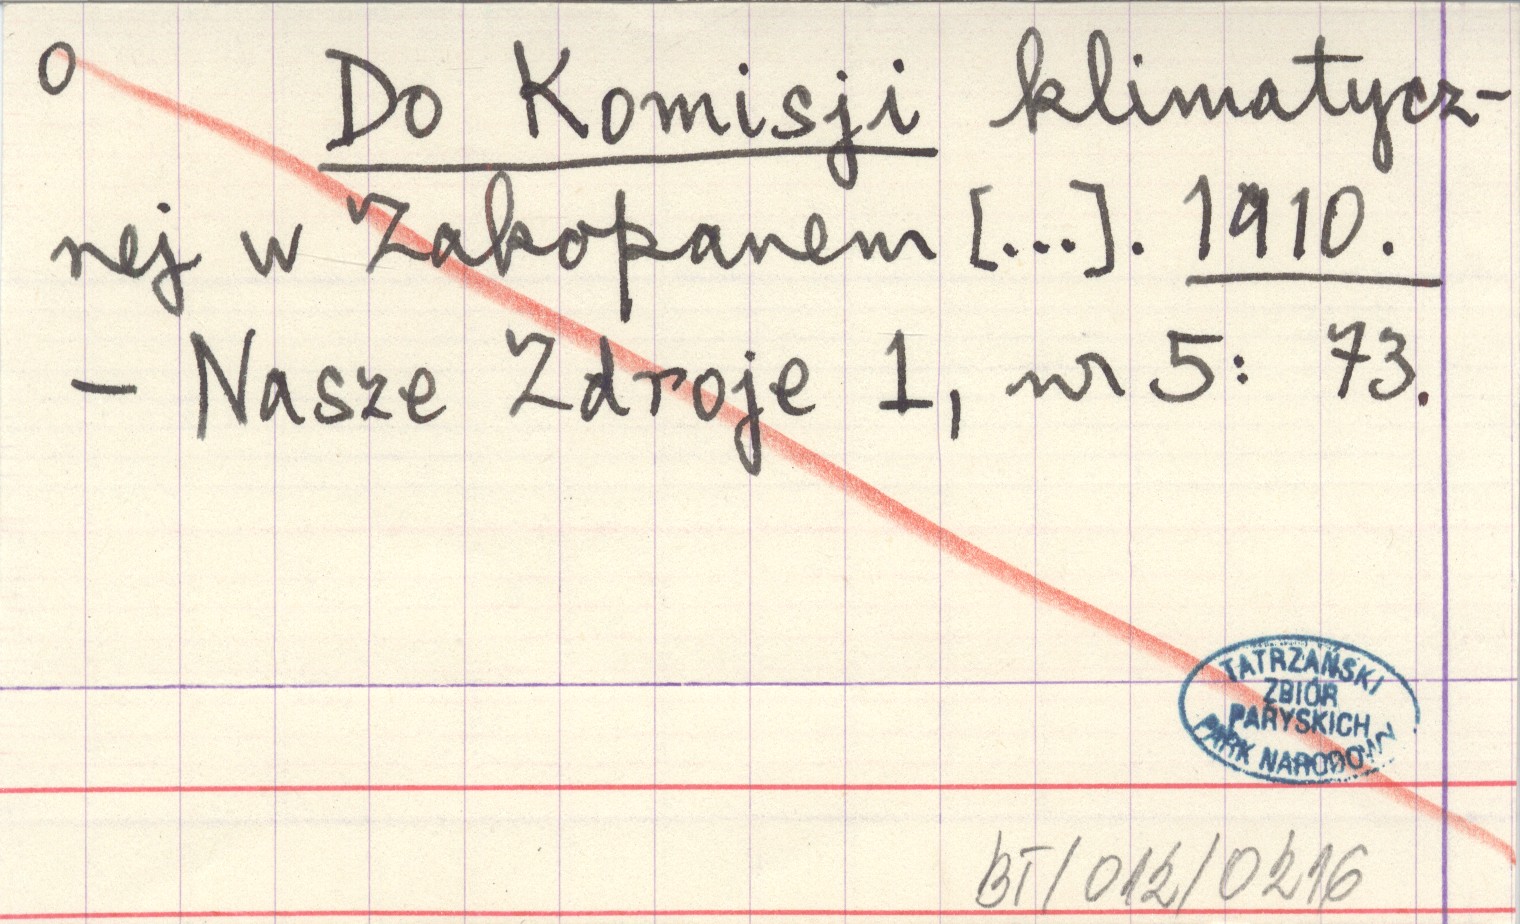 O Do Komisji klimatycz-
nej w Zakopanem [...]. 1910.
- Nasze Zdroje 1, nr 5: 73.
TATRZAŃSKI
ZBIÓR
PARYSKICH
PARK NARODOWY
BT/012/0216